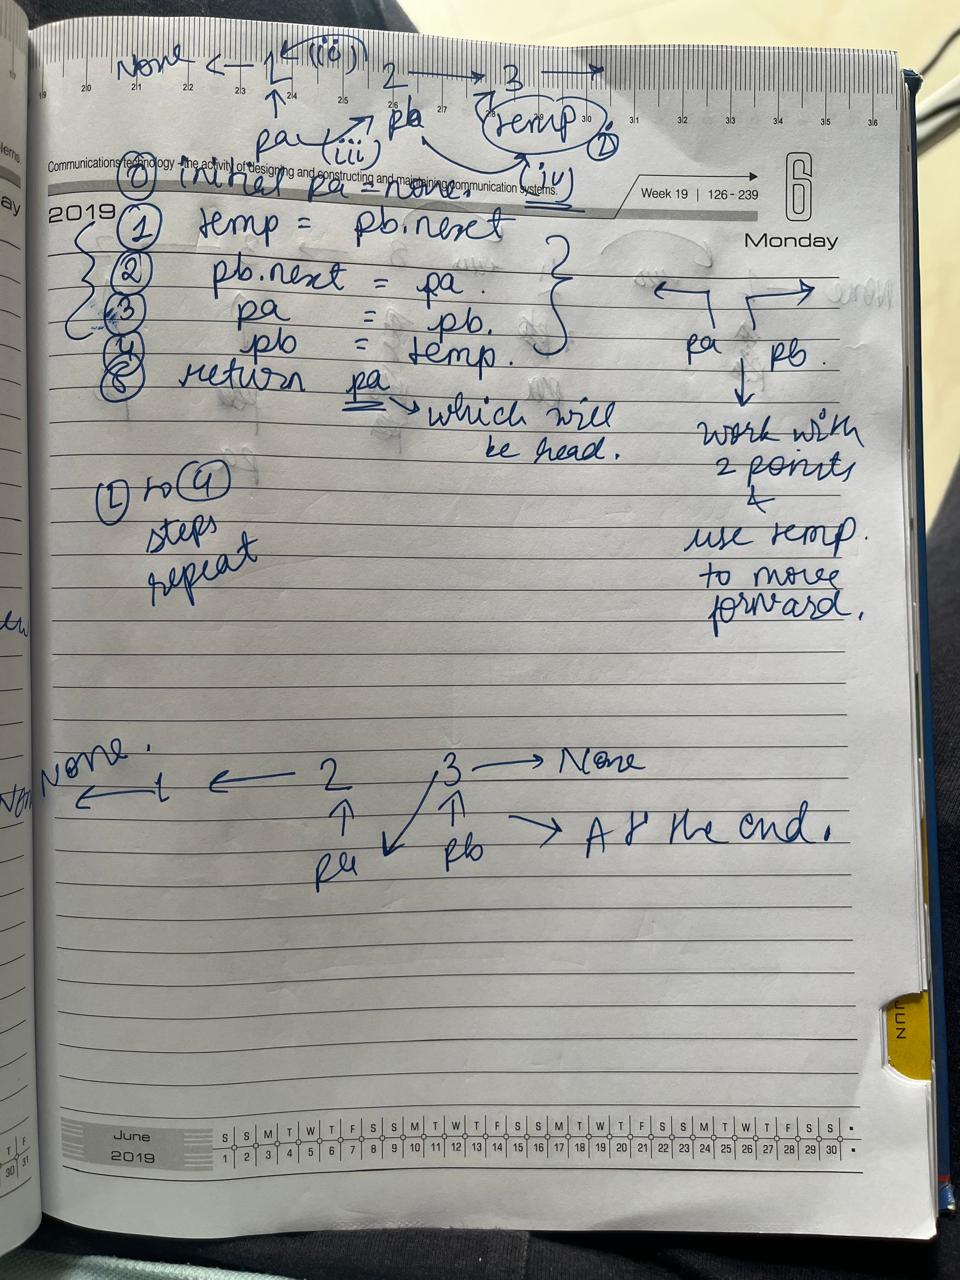 None ← 1 (ii) 2 → 3 →
19 20 21 22 23 24 25 26 27 28 29 30 31 32 33 34 35 36
pa (iii) pb temp (i)
Communications technology - the activity of designing and constructing and maintaining communication systems.
(iv)
Week 19 | 126 - 239
6
Monday
2019
(0) initial pa = none.
(1) temp = pb.next
(2) pb.next = pa.
(3) pa = pb.
(4) pb = temp.
(5) return pa
→ which will
be head.
← →
pa pb.
↓
work with
2 points
&
use temp.
to move
forward.
(1) to (4)
steps
repeat
None.
← 1 ← 2 3 → None
↑ ↑
pa pb → At the end.
JUN
June
2019
S S M T W T F S S M T W T F S S M T W T F S S M T W T F S S
1 2 3 4 5 6 7 8 9 10 11 12 13 14 15 16 17 18 19 20 21 22 23 24 25 26 27 28 29 30
T F
30 31